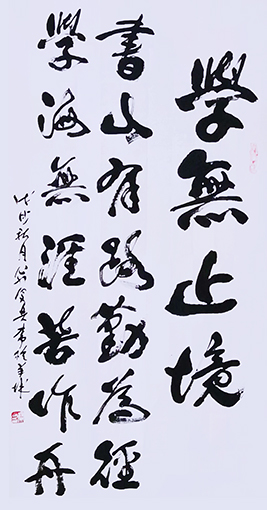 學無止境
書山有路勤為徑
學海無涯苦作舟
戊戌秋月